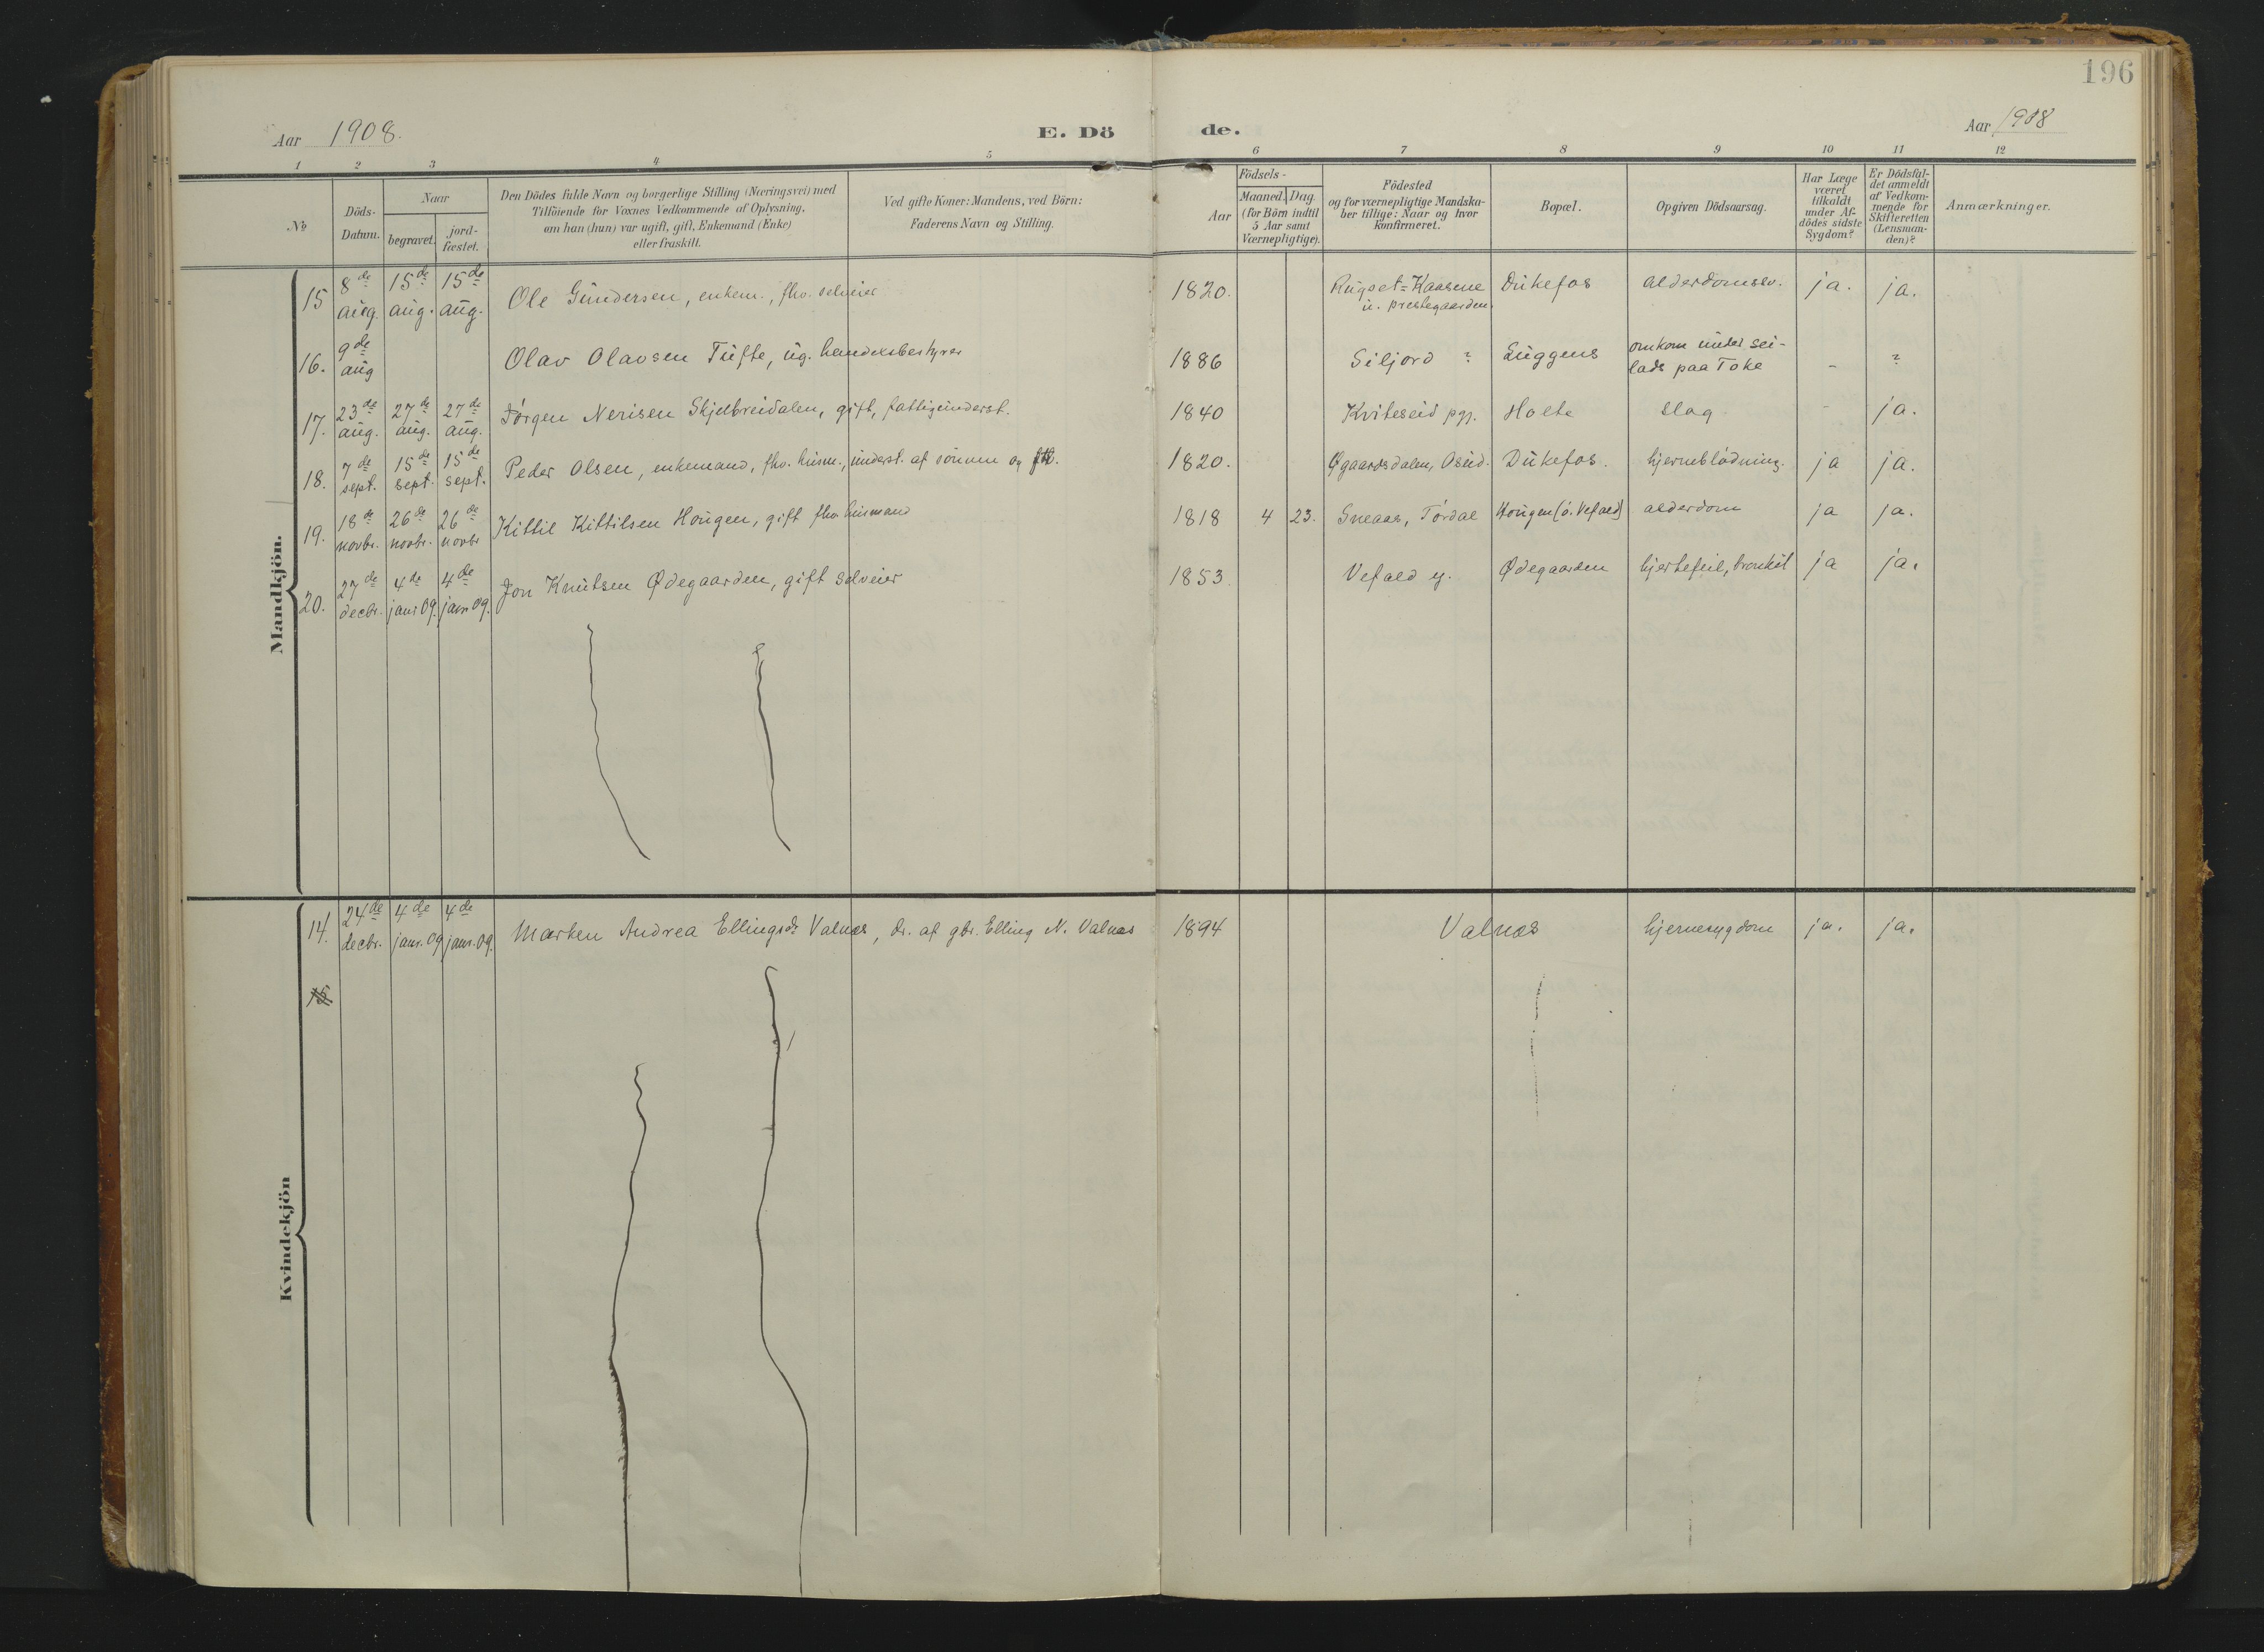 196
Aar 1908.
E. Dö de.
Aar 1908
1 2 3 4 5 6 7 8 9 10 11 12
No
Döds-
Datum.
Naar
begravet.
jord-
fæstet.
Den Dödes fulde Navn og borgerlige Stilling (Næringsvei) med
Tilföiende for Voxnes Vedkommende af Oplysning,
om han (hun) var ugift, gift, Enkemand (Enke)
eller fraskilt.
Ved gifte Koner: Mandens, ved Börn:
Faderens Navn og Stilling.
Födsels-
Aar
Maaned. Dag.
(for Börn indtil
5 Aar samt
Værnepligtige).
Födested
og for værnepligtige Mandska-
ber tillige: Naar og hvor
konfirmeret.
Bopæl.
Opgiven Dödsaarsag.
Har Læge
været
tilkaldt
under Af-
dödes sidste
Sygdom?
Er Dödsfal-
det anmeldt
af Vedkom-
mende for
Skifteretten
(Lensman-
den)?
Anmærkninger.
Mandkjön.
15 8de aug. 15de aug. 15de aug. Ole Gundersen, enkem., fhv. selveier 1820. Rugset-Kaasene Dukefos alderdomssv. ja. ja.
u. prestegaarden.
16. 9de aug Olav Olavsen Tufte, ug. handelsbestyrer 1886 Siljord ? Luggens omkom under sei-
lads paa Toke - ?
17. 23de aug. 27de aug. 27de aug. Jörgen Nerisen Skjelbreidalen, gift, fattigunderst. 1840 Kviteseid pgj. Holte slag - ja.
18. 7de sept. 15de sept. 15de sept. Peder Olsen, enkemand, fhv. husm., underst. af sönnen og 1820. Øgaardsdalen, Dukefos. hjerneblödning. ja ja.
19. 18de novbr. 26de novbr. 26de novbr Kittil Kittilsen Hougen, gift fhv husmand 1818 4 23. Sneaas, Tördal Hougen (ö. Vefald) alderdom ja ja.
20. 27de decbr. 4de janr 09. 4de janr 09. Jon Knutsen Ødegaarden, gift selveier 1853. Vefald y. Ødegaarden hjertefeil, bronkit ja ja.
Kvindekjön
14. 24de decbr. 4de janr. 09 4de janr. 09. Marken Andrea Ellingsdr Valnæs, dr. af gbr. Elling N. Valnæs 1894 Valnæs hjernesygdom ja. ja.
15